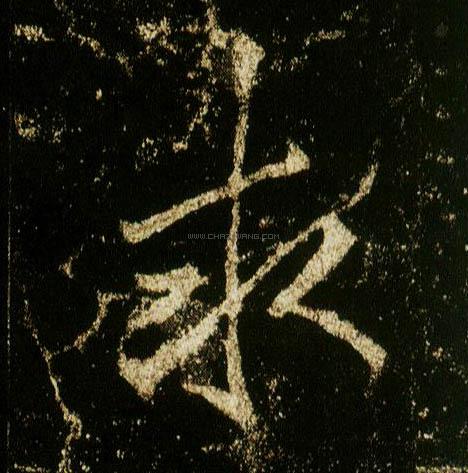 求
WWW.CHAZIWANG.COM